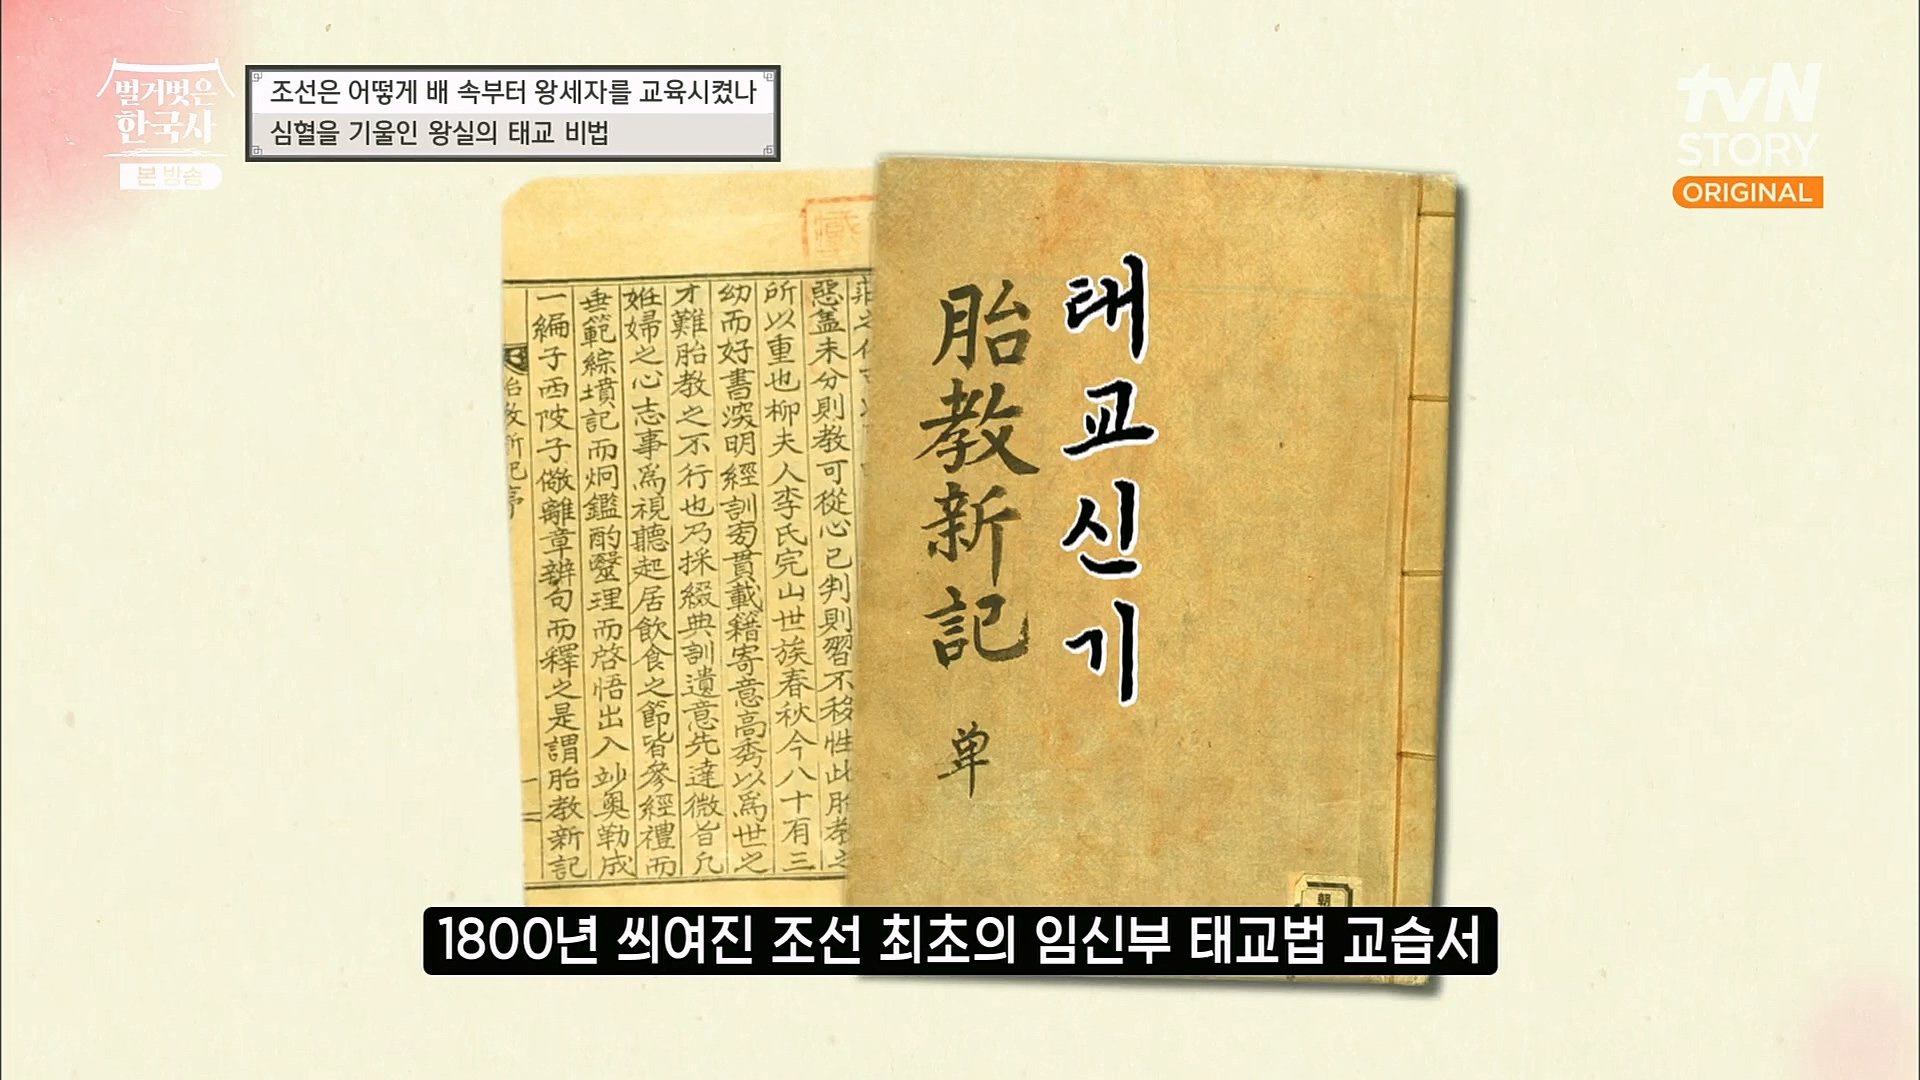 벌거벗은
한국사
본 방송
조선은 어떻게 배 속부터 왕세자를 교육시켰나
심혈을 기울인 왕실의 태교 비법
tvN
STORY
ORIGINAL
태교신기
胎教新記 単
惡盖未分則教可從心已判則習不移性此胎教之
所以重也柳夫人李氏完山世族春秋今八十有三
幼而好書深明經訓旁貫載籍寄意高秀以爲世之
才難胎教之不行也乃採綴典訓遺意先達微旨凡
姙婦之心志事爲視聽起居飮食之節皆參經禮而
垂範綜墳記而炯鑑酌毉理而啓悟出入竗奧勒成
一編子西陂子儆離章辨句而釋之是謂胎教新記
胎教新記序
1800년 씌여진 조선 최초의 임신부 태교법 교습서